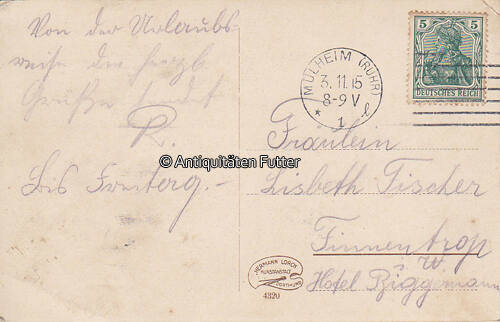 Von der Urlaubs-
reise die herzl.
Grüße sendet
R.
Bis Freitag.-
MÜLHEIM (RUHR)
3.11.15
8-9 V
* 1 l
5 5
DEUTSCHES REICH
© Antiquitäten Futter
Fräulein
Lisbeth Fischer
Finnentrop
i/W.
Hotel Biggemann
HERMANN LORCH
KUNSTANSTALT
DORTMUND
4320